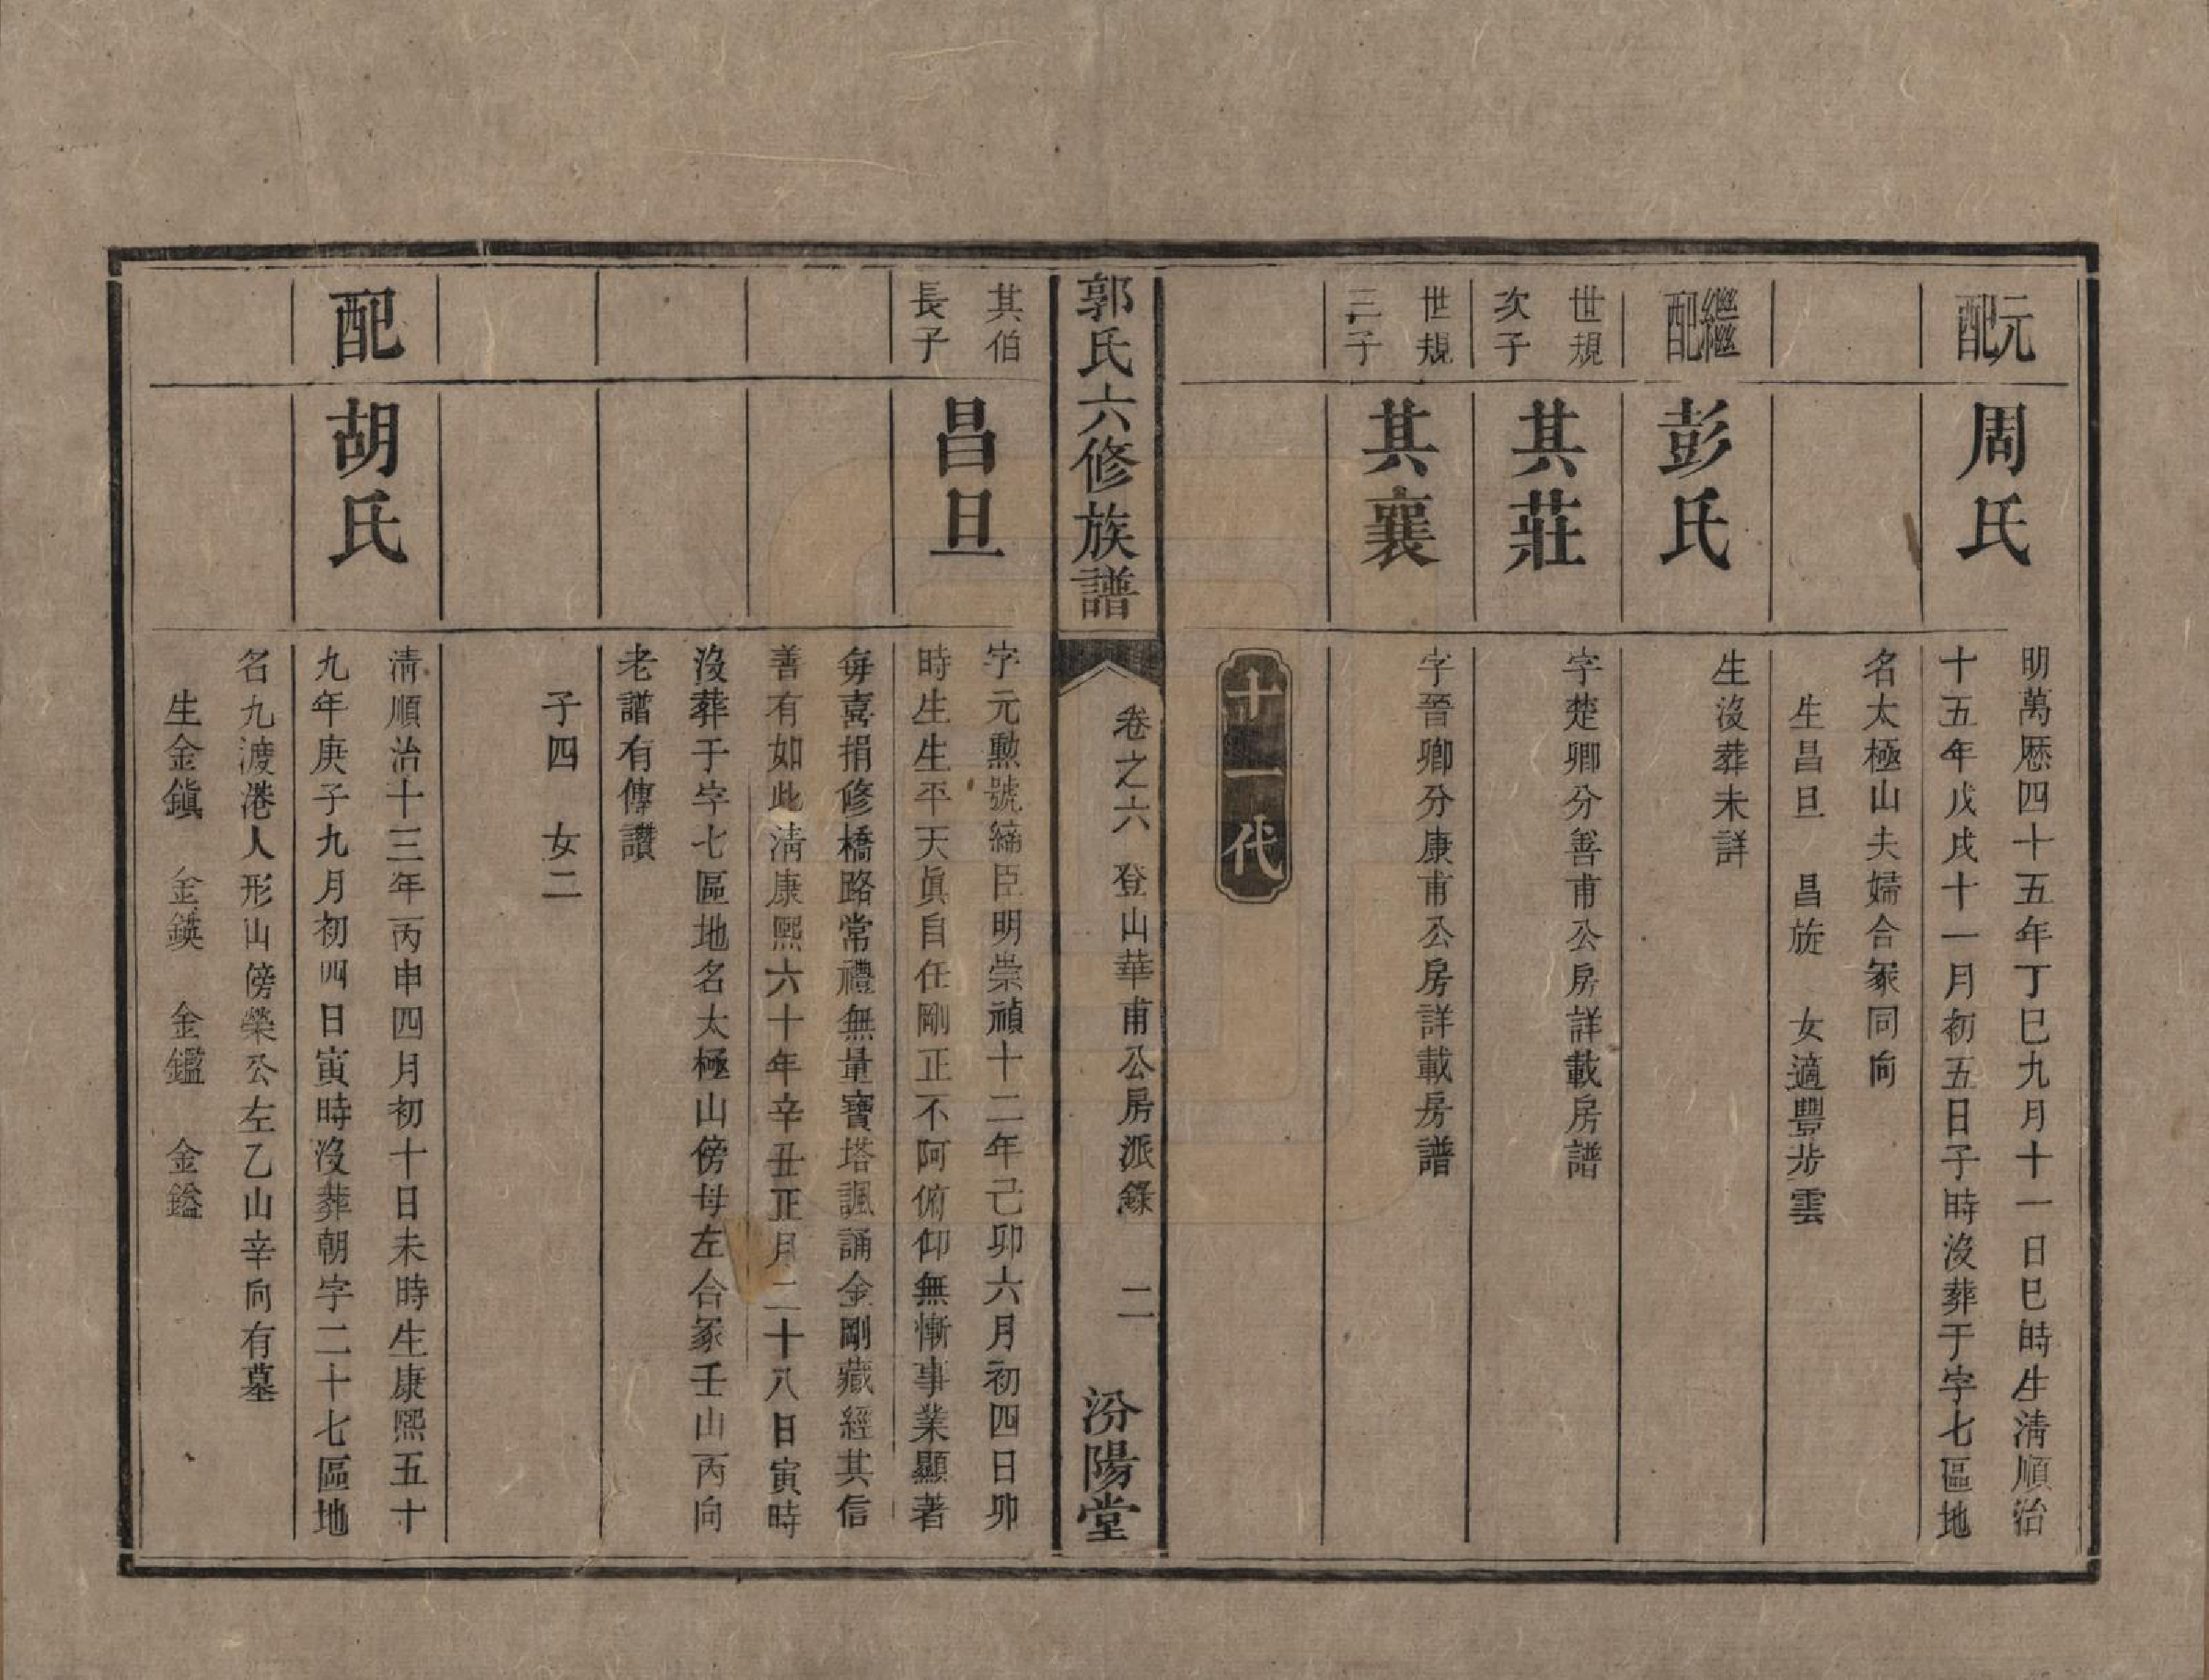 元配
周氏
明萬歷四十五年丁巳九月十一日巳時生清順治
十五年戊戌十一月初五日子時沒葬于字七區地
名太極山夫婦合冢同向
生昌旦　昌旋　女適豐步雲
繼配
彭氏
生沒葬未詳
世規
次子
其莊
字楚卿分善甫公房詳載房譜
世規
三子
其襄
字晉卿分康甫公房詳載房譜
十一代
郭氏六修族譜
卷之六　登山華甫公房派錄　二
汾陽堂
其伯
長子
昌旦
字元勳號 臣明崇禎十二年己卯六月初四日卯
時生生平天眞自任剛正不阿俯仰無慚事業顯著
每喜捐修橋路常禮無量寶塔諷誦金剛藏經其信
善有如此清康熙六十年辛丑正月二十八日寅時
沒葬于字七區地名太極山傍母左合冢壬山丙向
老譜有傳讚
子四　女二
配
胡氏
清順治十三年丙申四月初十日未時生康熙五十
九年庚子九月初四日寅時沒葬朝字二十七區地
名九渡港人形山傍榮公左乙山辛向有墓
生金鎮　金鍈　金鑑　金鎰